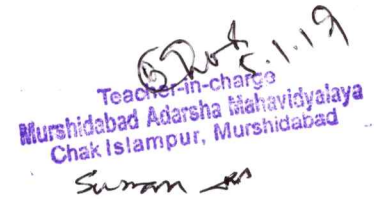 5.1.19
Teacher-in-charge
Murshidabad Adarsha Mahavidyalaya
Chak Islampur, Murshidabad
Suman